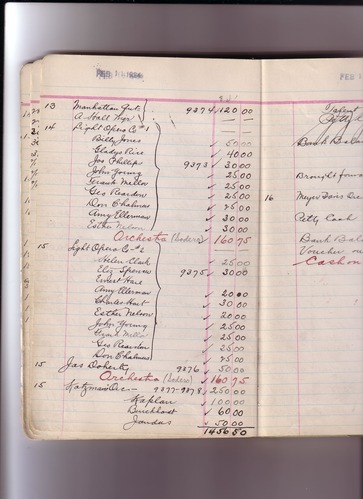 FEB 11 1924
13 Manhattan Qut. 9374 120.00
A Hall Mgr — —
14 Light Opera Co #1 — —
Billy Jones 50.00
Gladys Rice 40.00
Jos Phillips 9373 30.00
John Young 25.00
Frank Mellor 25.00
Geo Reardon 25.00
Don Chalmas 25.00
Amy Ellerman 30.00
Esther Nelson 30.00
Orchestra (Voders) 160.75
15 Light Opera Co #2
Helen Clark 25.00
Eliz Spencer 9375 30.00
Ernest Hare
Amy Ellerman 20.00
Charles Hart 30.00
Esther Nelson 20.00
John Young 25.00
Frank Mellor 25.00
Geo Reardon 25.00
Don Chalmas 25.00
15 Jas Doherty 9376 50.00
Orchestra (Voders) 160.75
15 Katzman Orc — 9377-9378 250.00
Kaplan 100.00
Burckhart 60.00
Jaudas 50.00
1456.50
FEB 1
Talent
Petty
Bank Balan
Brought forwa
16 Meyer Davis Orc
Petty Cash
Bank Bal
Voucher
Cash on